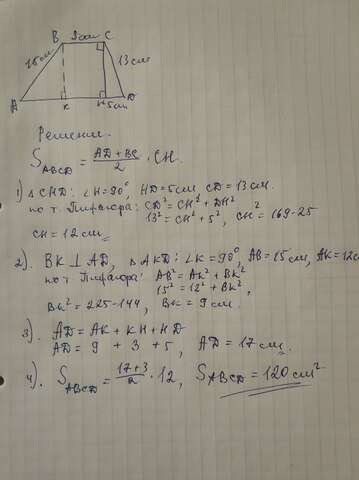 B 3cm C
15cm 13cm
A K H 5cm D
Решение.
S ABCD = AD + BC / 2 · CH.
1) △ CHD: ∠H = 90°, HD = 5cm, CD = 13cm.
по т. Пифагора: CD² = CH² + DH²
13² = CH² + 5², CH² = 169 - 25
CH = 12cm
2). BK ⊥ AD, △ AKD: ∠K = 90°, AB = 15cm, AK = 12cm
по т. Пифагора: AB² = AK² + BK²
15² = 12² + BK²,
BK² = 225 - 144, BK = 9cm.
3). AD = AK + KH + HD
AD = 9 + 3 + 5, AD = 17cm.
4). S ABCD = 17+3 / 2 · 12, S ABCD = 120cm²